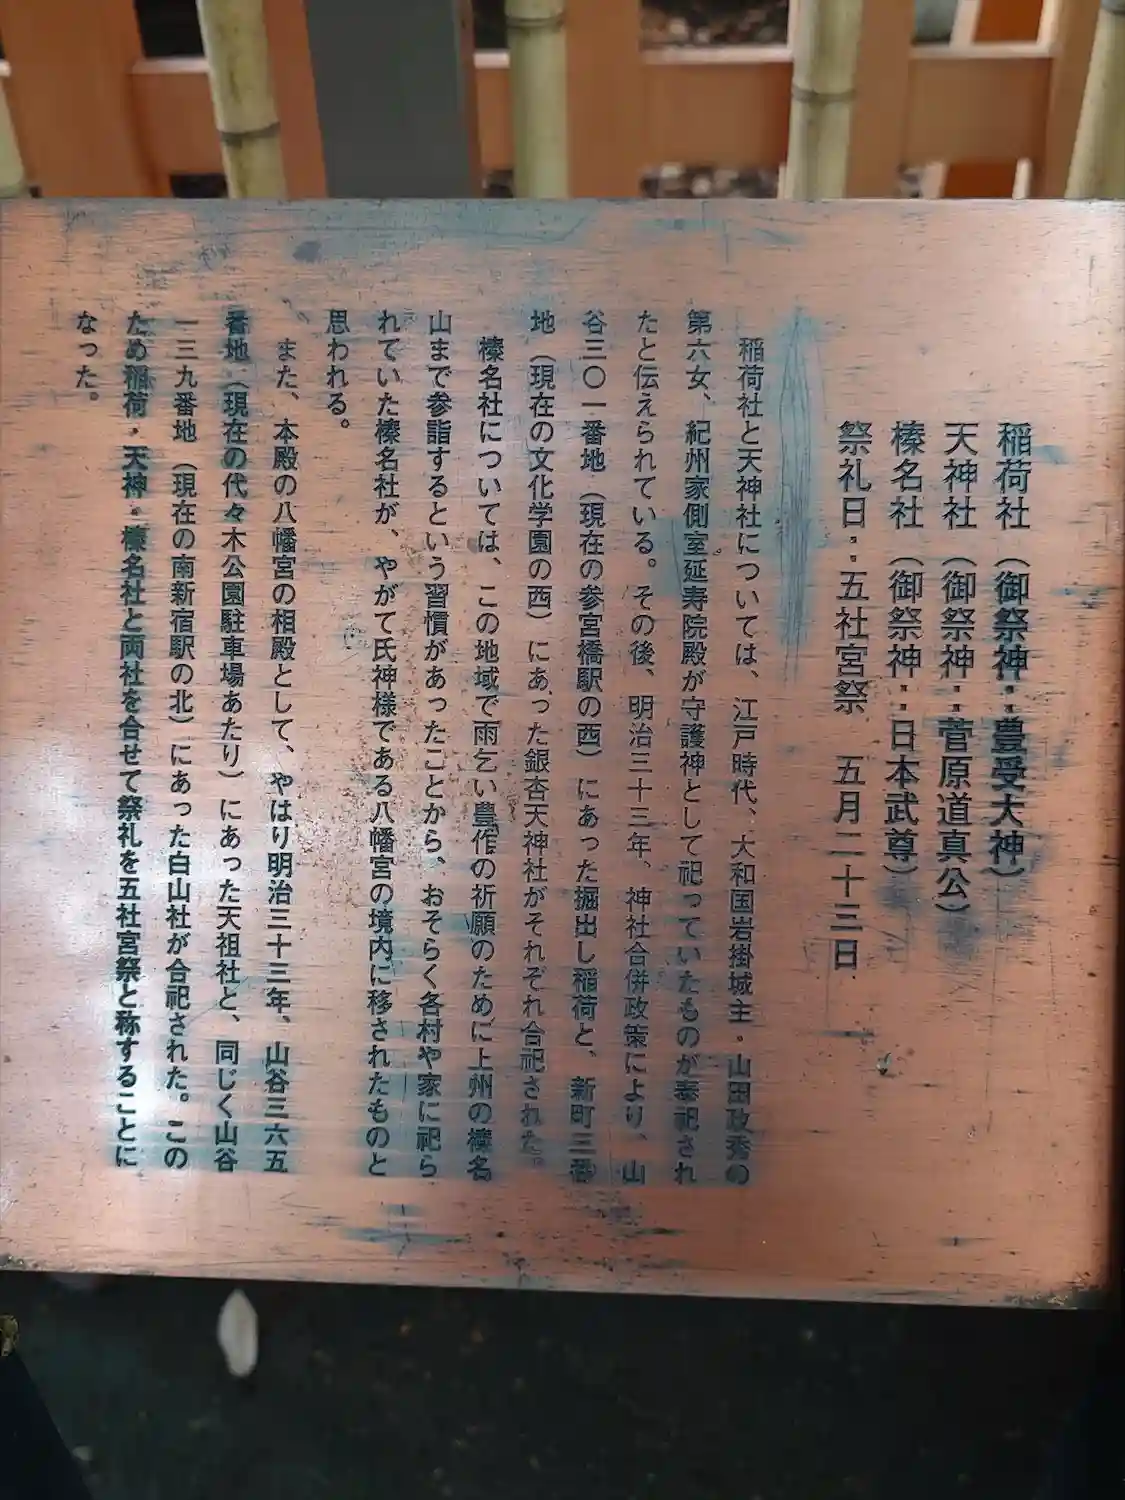 稲荷社（御祭神：豊受大神）
天神社（御祭神：菅原道真公）
榛名社（御祭神：日本武尊）
祭礼日：五社宮祭　五月二十三日
稲荷社と天神社については、江戸時代、大和国岩掛城主・山田政秀の
第六女、紀州家側室延寿院殿が守護神として祀っていたものが奉祀され
たと伝えられている。その後、明治三十三年、神社合併政策により、山
谷三〇一番地（現在の参宮橋駅の西）にあった掘出し稲荷と、新町三番
地（現在の文化学園の西）にあった銀杏天神社がそれぞれ合祀された。
榛名社については、この地域で雨乞い豊作の祈願のために上州の榛名
山まで参詣するという習慣があったことから、おそらく各村や家に祀ら
れていた榛名社が、やがて氏神様である八幡宮の境内に移されたものと
思われる。
また、本殿の八幡宮の相殿として、やはり明治三十三年、山谷三六五
番地（現在の代々木公園駐車場あたり）にあった天祖社と、同じく山谷
一三九番地（現在の南新宿駅の北）にあった白山社が合祀された。この
ため稲荷・天神・榛名社と両社を合せて祭礼を五社宮祭と称することに
なった。